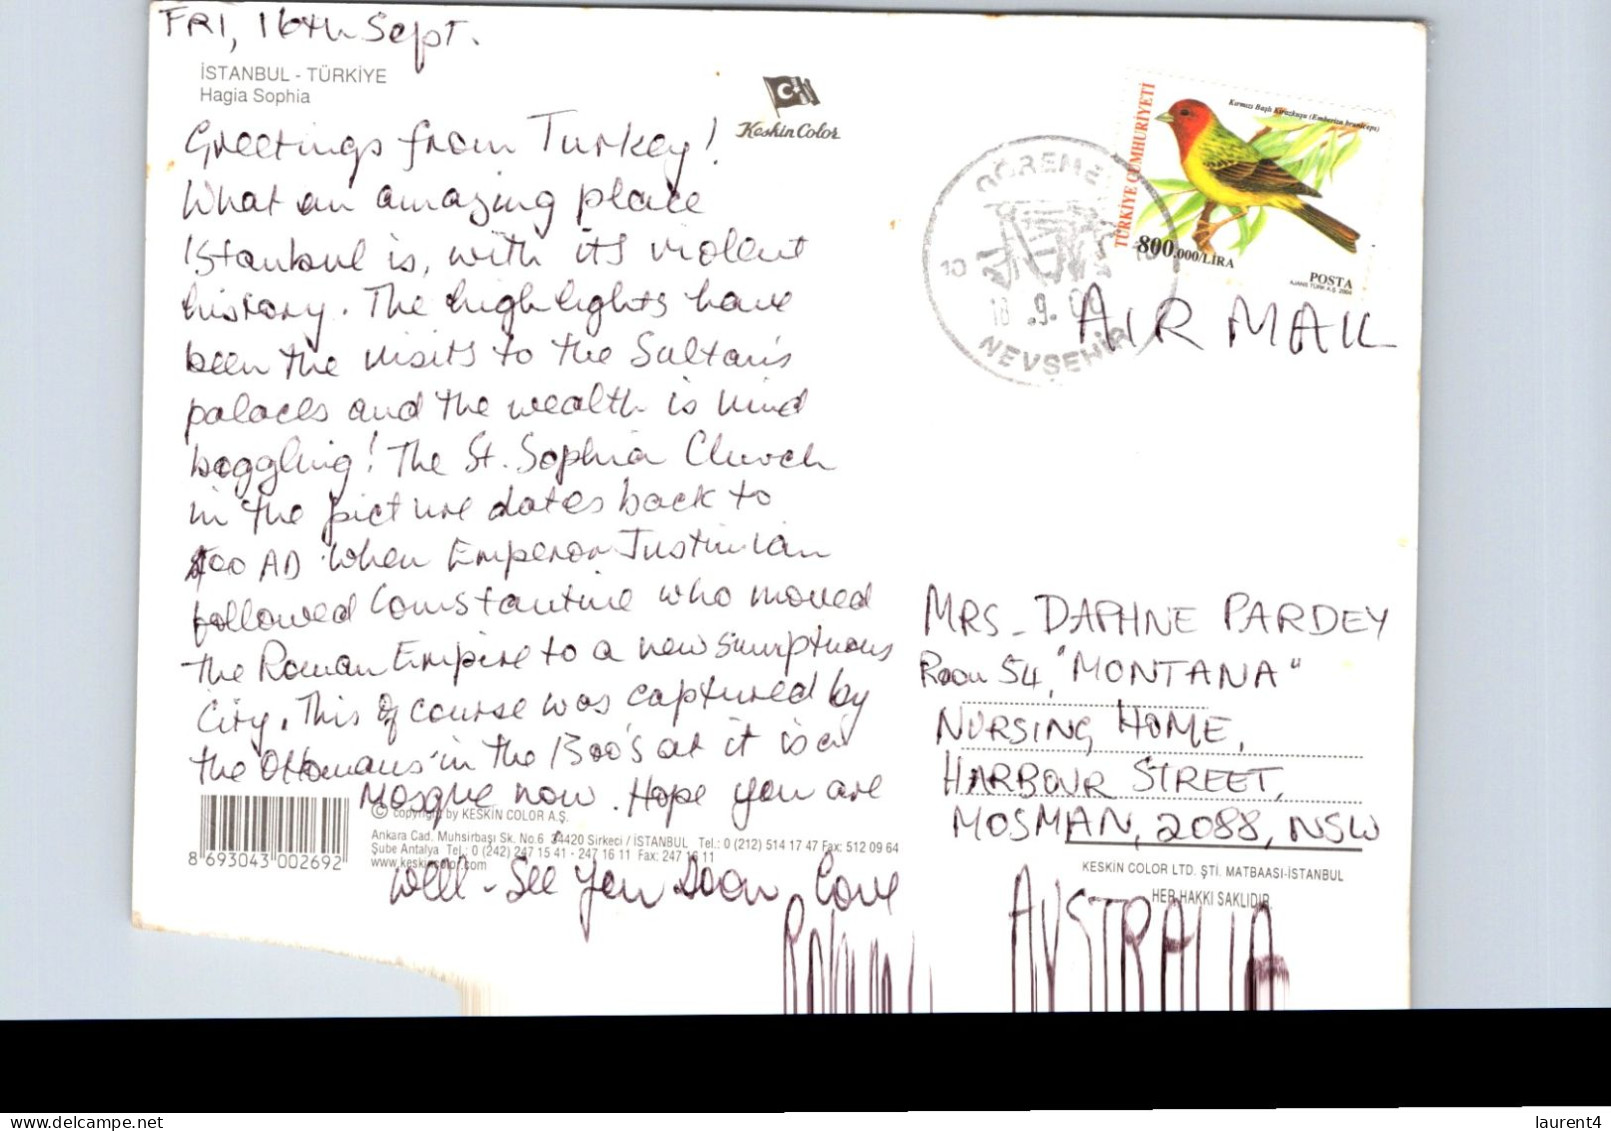 FRI, 16th Sept.
İSTANBUL - TÜRKİYE
Hagia Sophia
Greetings from Turkey!
What an amazing place
Istanbul is, with its violent
history. The highlights have
been the visits to the Sultan's
palaces and the wealth is mind
boggling! The St. Sophia Church
in the picture dates back to
500 AD when Emperor Justinian
followed Constantine who moved
the Roman Empire to a new sumptuous
City. This of course was captured by
the Ottomans in the 1300's at it is a
Mosque now. Hope you are
well - See you soon, Love
Keskin Color
GÖREME
10
18 .9.
NEVŞEHİR
TÜRKİYE CUMHURİYETİ
Kırmızı Başlı Kirazkuşu (Emberiza bruniceps)
800.000/LİRA
POSTA
AJANS TÜRK A.Ş. 2004
AIR MAIL
MRS. DAPHNE PARDEY
Room 54, "MONTANA"
NURSING HOME,
HARBOUR STREET,
MOSMAN, 2088, NSW
AUSTRALIA
8 693043 002692
© copyright by KESKİN COLOR A.Ş.
Ankara Cad. Muhsirbaşı Sk. No.6 34420 Sirkeci / İSTANBUL Tel.: 0 (212) 514 17 47 Fax: 512 09 64
Şube Antalya Tel.: 0 (242) 247 15 41 - 247 16 11 Fax: 247 16 11
www.keskincolor.com
KESKİN COLOR LTD. ŞTİ. MATBAASI-İSTANBUL
HER HAKKI SAKLIDIR
delcampe.net
laurent4